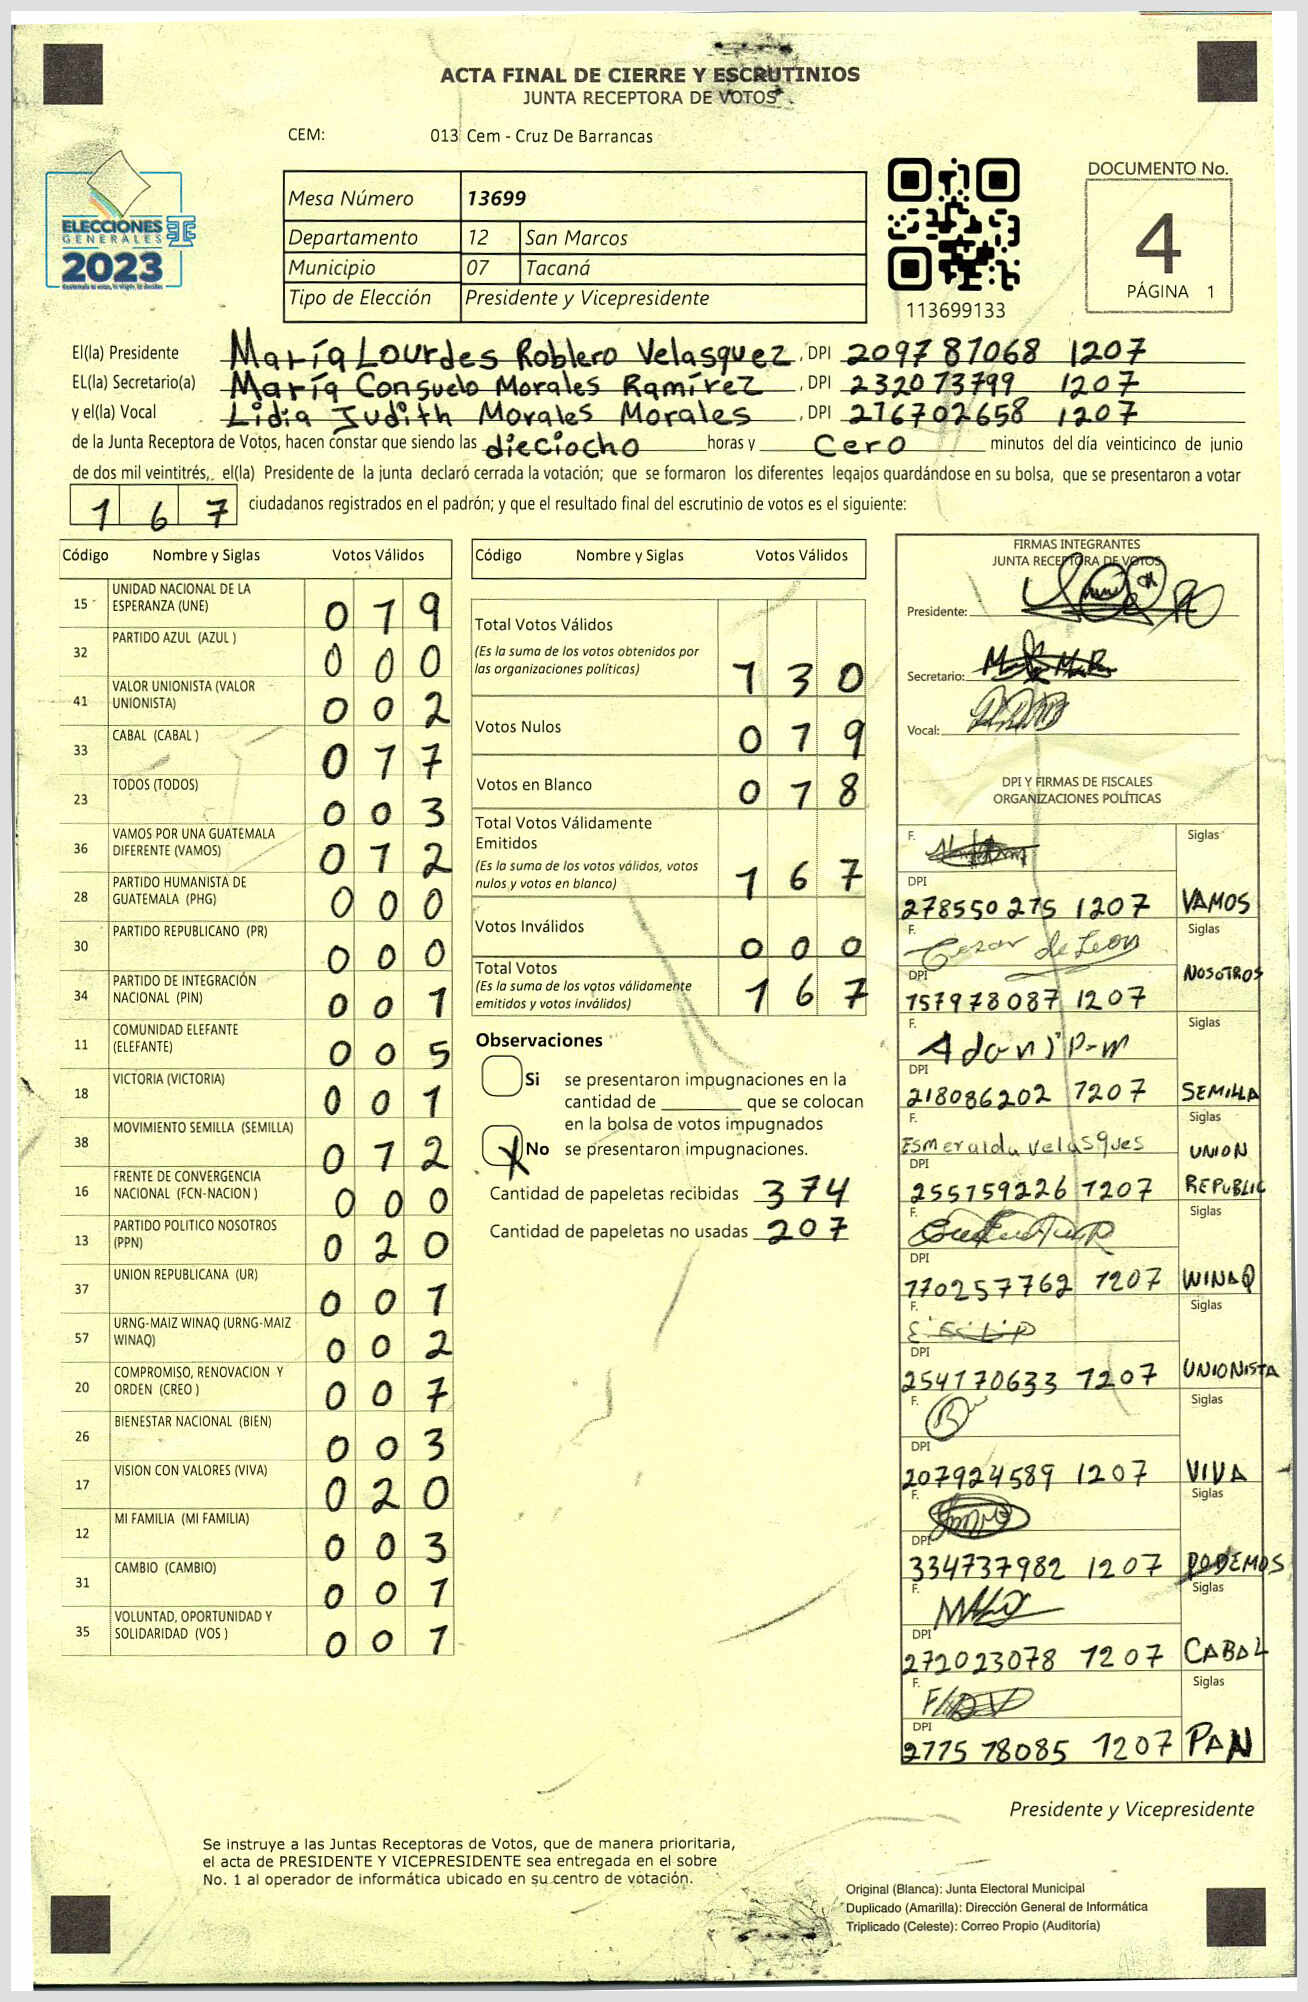 ACTA FINAL DE CIERRE Y ESCRUTINIOS
JUNTA RECEPTORA DE VOTOS
CEM: 013 Cem - Cruz De Barrancas
ELECCIONES
GENERALES
2023
Mesa Número 13699
Departamento 12 San Marcos
Municipio 07 Tacaná
Tipo de Elección Presidente y Vicepresidente
113699133
DOCUMENTO No.
4
PÁGINA 1
El(la) Presidente María Lourdes Roblero Velasquez, DPI 209781068 1207
EL(la) Secretario(a) María Consuelo Morales Ramírez, DPI 232013799 1207
y el(la) Vocal Lidia Judith Morales Morales, DPI 216702658 1207
de la Junta Receptora de Votos, hacen constar que siendo las dieciocho horas y cero minutos del día veinticinco de junio
de dos mil veintitrés, el(la) Presidente de la junta declaró cerrada la votación; que se formaron los diferentes legajos guardándose en su bolsa, que se presentaron a votar
1 6 7 ciudadanos registrados en el padrón; y que el resultado final del escrutinio de votos es el siguiente:
Código Nombre y Siglas Votos Válidos
15 UNIDAD NACIONAL DE LA ESPERANZA (UNE) 0 1 9
32 PARTIDO AZUL (AZUL ) 0 0 0
41 VALOR UNIONISTA (VALOR UNIONISTA) 0 0 2
33 CABAL (CABAL ) 0 1 7
23 TODOS (TODOS) 0 0 3
36 VAMOS POR UNA GUATEMALA DIFERENTE (VAMOS) 0 1 2
28 PARTIDO HUMANISTA DE GUATEMALA (PHG) 0 0 0
30 PARTIDO REPUBLICANO (PR) 0 0 0
34 PARTIDO DE INTEGRACIÓN NACIONAL (PIN) 0 0 1
11 COMUNIDAD ELEFANTE (ELEFANTE) 0 0 5
18 VICTORIA (VICTORIA) 0 0 1
38 MOVIMIENTO SEMILLA (SEMILLA) 0 1 2
16 FRENTE DE CONVERGENCIA NACIONAL (FCN-NACION ) 0 0 0
13 PARTIDO POLITICO NOSOTROS (PPN) 0 2 0
37 UNION REPUBLICANA (UR) 0 0 1
57 URNG-MAIZ WINAQ (URNG-MAIZ WINAQ) 0 0 2
20 COMPROMISO, RENOVACION Y ORDEN (CREO ) 0 0 7
26 BIENESTAR NACIONAL (BIEN) 0 0 3
17 VISION CON VALORES (VIVA) 0 2 0
12 MI FAMILIA (MI FAMILIA) 0 0 3
31 CAMBIO (CAMBIO) 0 0 1
35 VOLUNTAD, OPORTUNIDAD Y SOLIDARIDAD (VOS ) 0 0 1
Código Nombre y Siglas Votos Válidos
Total Votos Válidos
(Es la suma de los votos obtenidos por
las organizaciones políticas) 1 3 0
Votos Nulos 0 1 9
Votos en Blanco 0 1 8
Total Votos Válidamente
Emitidos
(Es la suma de los votos válidos, votos
nulos y votos en blanco) 1 6 7
Votos Inválidos 0 0 0
Total Votos
(Es la suma de los votos válidamente
emitidos y votos inválidos) 1 6 7
Observaciones
Si se presentaron impugnaciones en la
cantidad de ________ que se colocan
en la bolsa de votos impugnados
X No se presentaron impugnaciones.
Cantidad de papeletas recibidas 374
Cantidad de papeletas no usadas 207
FIRMAS INTEGRANTES
JUNTA RECEPTORA DE VOTOS
Presidente:
Secretario:
Vocal:
DPI Y FIRMAS DE FISCALES
ORGANIZACIONES POLÍTICAS
F. Siglas
DPI
278550275 1207 VAMOS
F. Cezar de Leon Siglas
DPI NOSOTROS
157978087 1207
F. Siglas
DPI
218086202 1207 SEMILLA
F. Esmeralda Velasques Siglas
DPI UNION
255159226 1207 REPUBLIC
F. Siglas
DPI
170257762 1207 WINAQ
F. Siglas
DPI
254170633 1207 UNIONISTA
F. Siglas
DPI
207924589 1207 VIVA
F. Siglas
DPI
334737982 1207 PODEMOS
F. Siglas
DPI
272023078 1207 CABAL
F. Siglas
DPI
277518085 1207 PAN
Presidente y Vicepresidente
Se instruye a las Juntas Receptoras de Votos, que de manera prioritaria,
el acta de PRESIDENTE Y VICEPRESIDENTE sea entregada en el sobre
No. 1 al operador de informática ubicado en su centro de votación.
Original (Blanca): Junta Electoral Municipal
Duplicado (Amarilla): Dirección General de Informática
Triplicado (Celeste): Correo Propio (Auditoría)